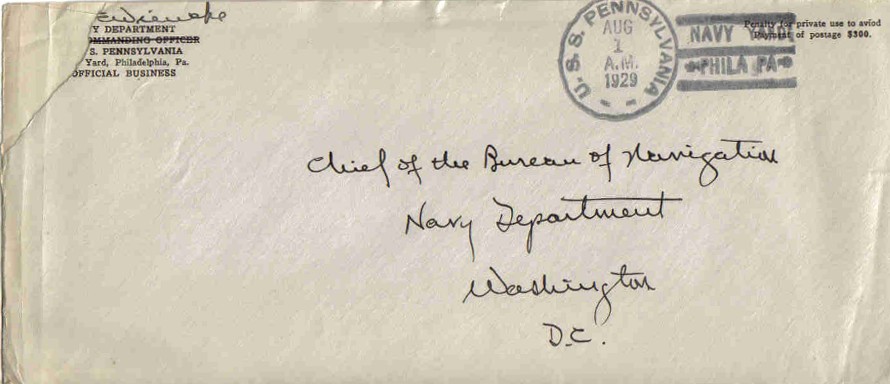 Y DEPARTMENT
OMMANDING OFFICER
S. PENNSYLVANIA
Yard, Philadelphia, Pa.
OFFICIAL BUSINESS
U.S.S. PENNSYLVANIA
AUG
1
A.M.
1929
NAVY
PHILA PA
Penalty for private use to aviod
Payment of postage $300.
Chief of the Bureau of Navigation
Navy Department
Washington
D.C.